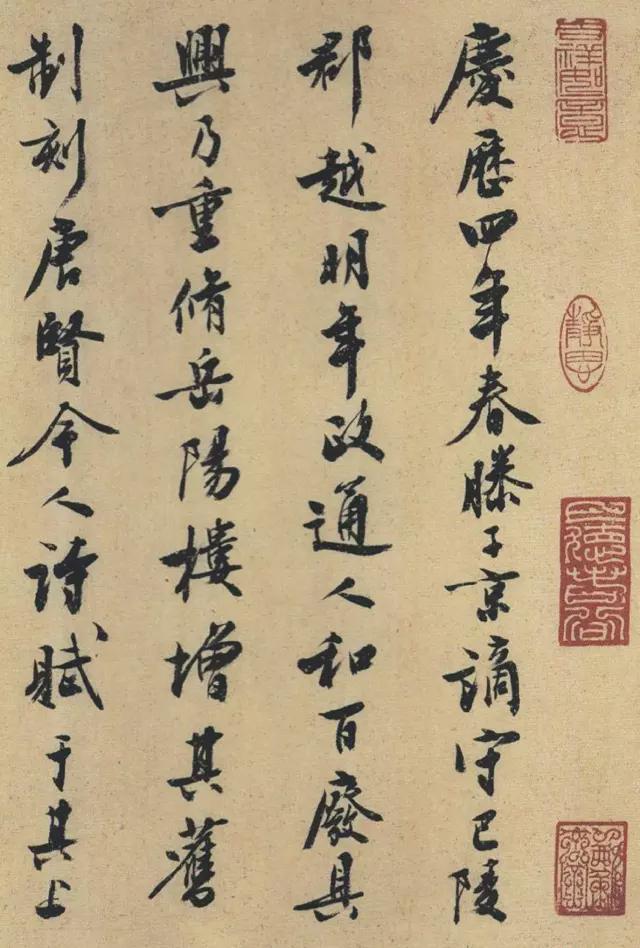 慶歷四年春滕子京謫守巴陵
郡越明年政通人和百廢具
興乃重脩岳陽樓增其舊
制刻唐賢令人詩賦于其上